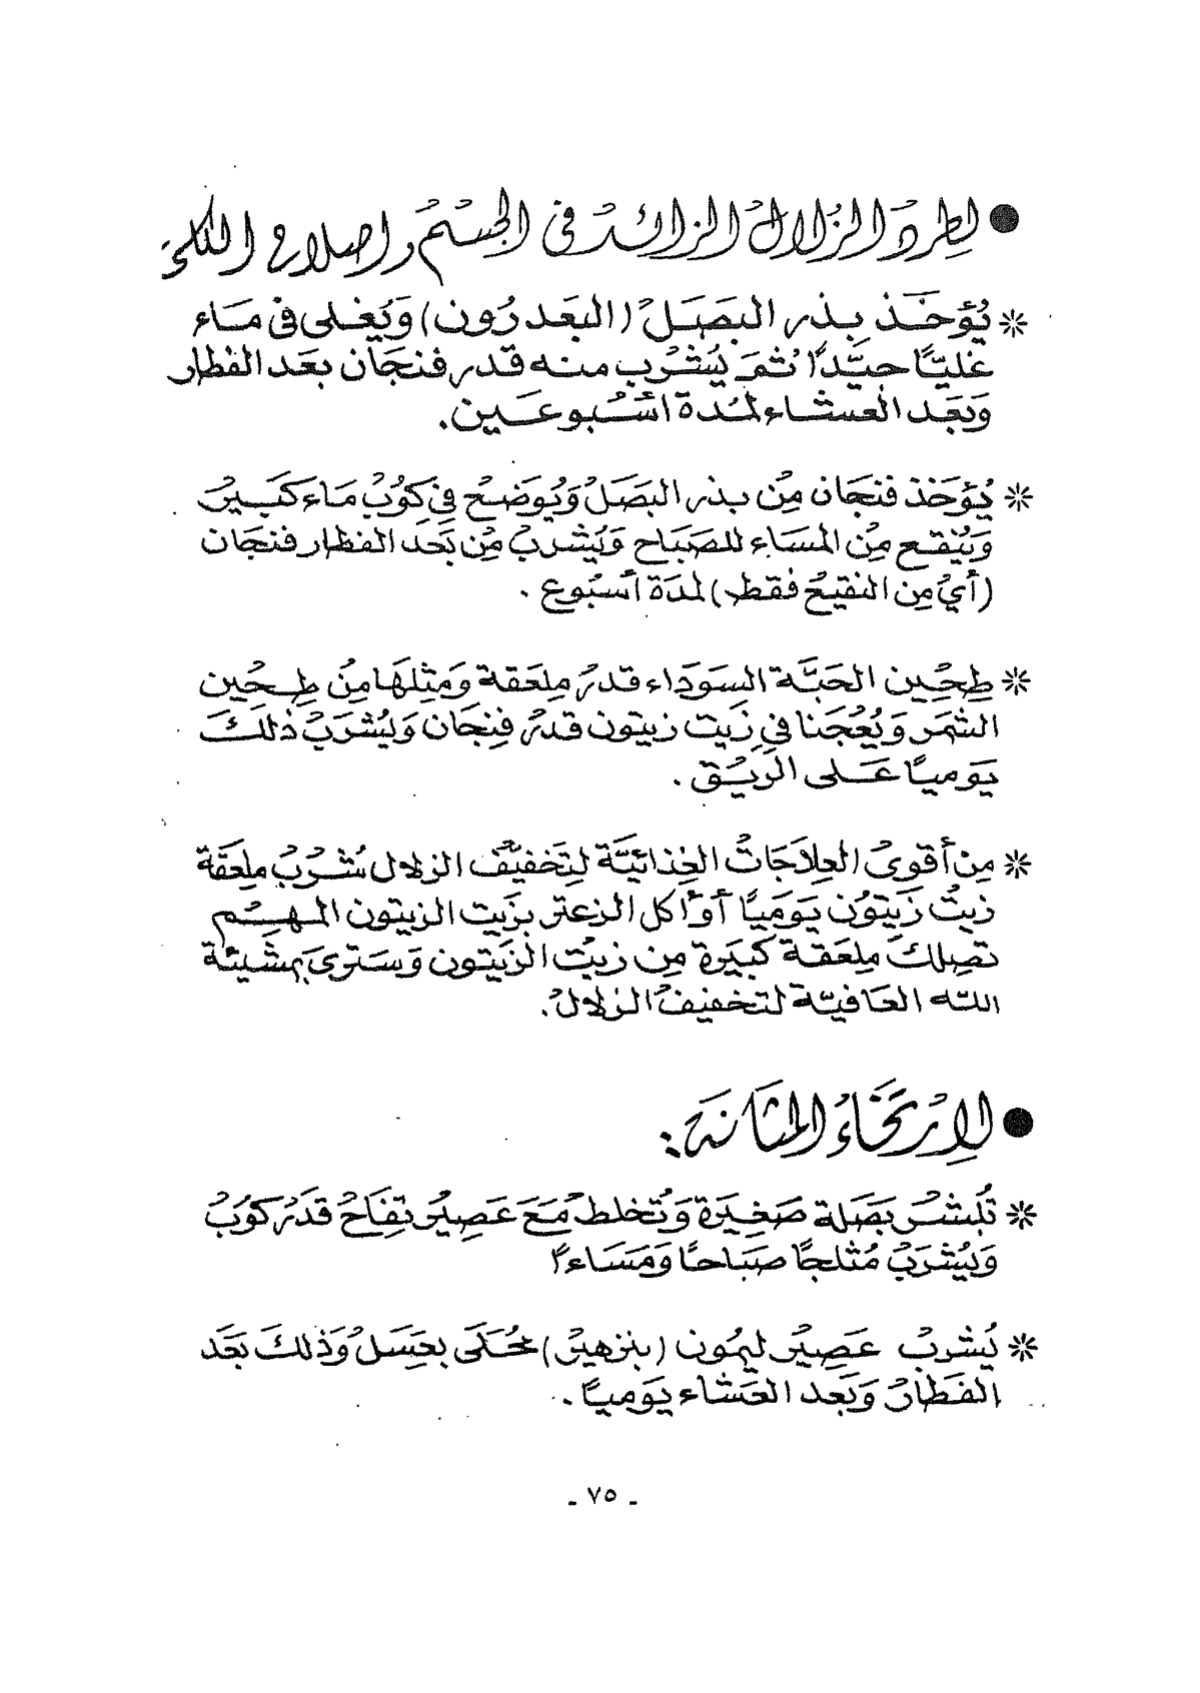 ● لطرد الزلال الزائد في الجسم واصلاح الكلى
* يُؤخَذ بذر البَصَلْ (البَعدرُون) وَيُغلى في مَاء
غليًا جيّدًا ثمَ يُشرب منه قدر فنجَان بعَد الفطار
وَبعَد العشاء لمُدة أسْبوعَين.
* يُؤخَذ فنجَان مِن بذر البَصَلْ وَيُوَضعْ فِي كوُبْ مَاء كَبَيرْ
وَيُنقع مِن المسَاء للصَبَاح وَيَشربْ مِن بَعَد الفطار فنجَان
(أيْ مِن النقيعْ فقط) لمدَة أسْبُوع .
* طِحْين الحَبَّة السَودَاء قدرْ مِلعَقة وَمَثِلهَا مِنْ طِحْين
الشمَر وَيُعْجَنا فيِ زَيت زيتون قدرْ فِنجَان وَيُشرَبْ ذلكَ
يَوميًا عَلى الرَيْق .
* مِن أقوىْ العِلاجَاتْ الغِذائيَّة لتِخَفيفْ الزلال شُرْبْ ملِعَقَة
زيتْ زَيَتوُن يَوَميَاً أوَأكل الزعتر بزَيت الزيتون المهِسْم
تصِلكَ مِلعَقة كَبيَرة مِن زيتْ الزَيَتون وَسَترىَ بمشَيئَة
الله العَافيّة لتخفيفْ الزلالْ.
● لإرتخاء المثانة :
* تُبشرْ بَصَلة صَغيَرة وَتُخلط مَعَ عَصِيرْ تفِاحْ قدَر كوُبَ
وَيُشرَبْ مُثلجًا صَبَاحًا وَمَسَاءً
* يُشربْ عَصِيرْ ليمُون (بنزهيرْ) مُحَلىَ بعَسَلْ وَذلكَ بعَد
الفَطارْ وَبَعد العَشاء يَوَمياً .
- ٧٥ -